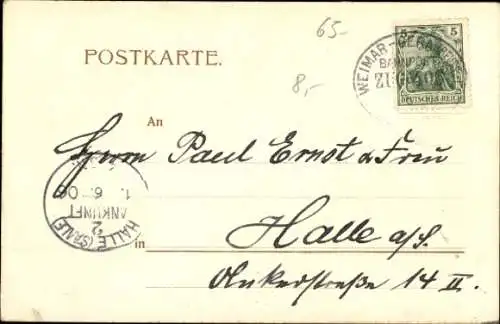 65-
POSTKARTE.
8,-
5 5
WEIMAR-GERA
BAHNPOST
ZUG
DEUTSCHES REICH
An
Herrn Paul Ernst & Frau
1. 6. 0
ANKUNFT
2
HALLE (SAALE)
in Halle a/S.
straße 14 II.